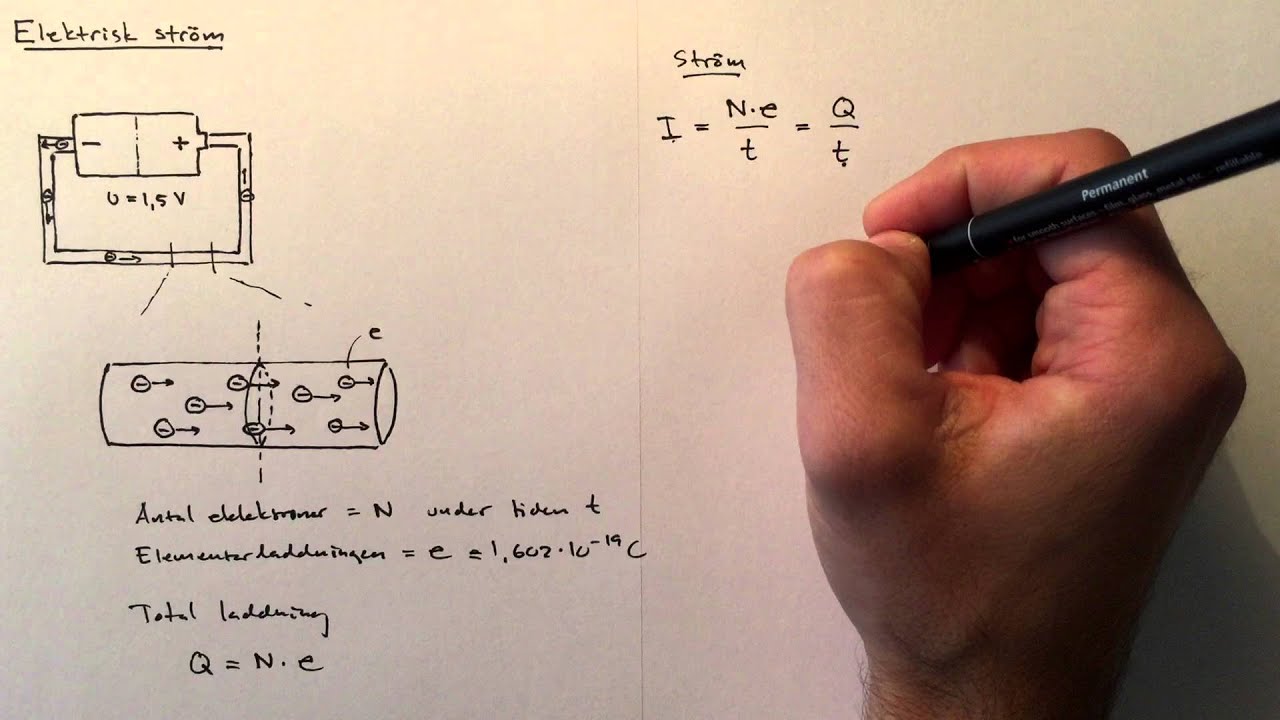 Elektrisk ström
− +
U = 1,5 V
e
Antal elektroner = N under tiden t
Elementarladdningen = e = 1,602·10⁻¹⁹ C
Total laddning
Q = N·e
Ström
I = N·e/t = Q/t
Permanent
for smooth surfaces - film, glass, metal etc. - refillable